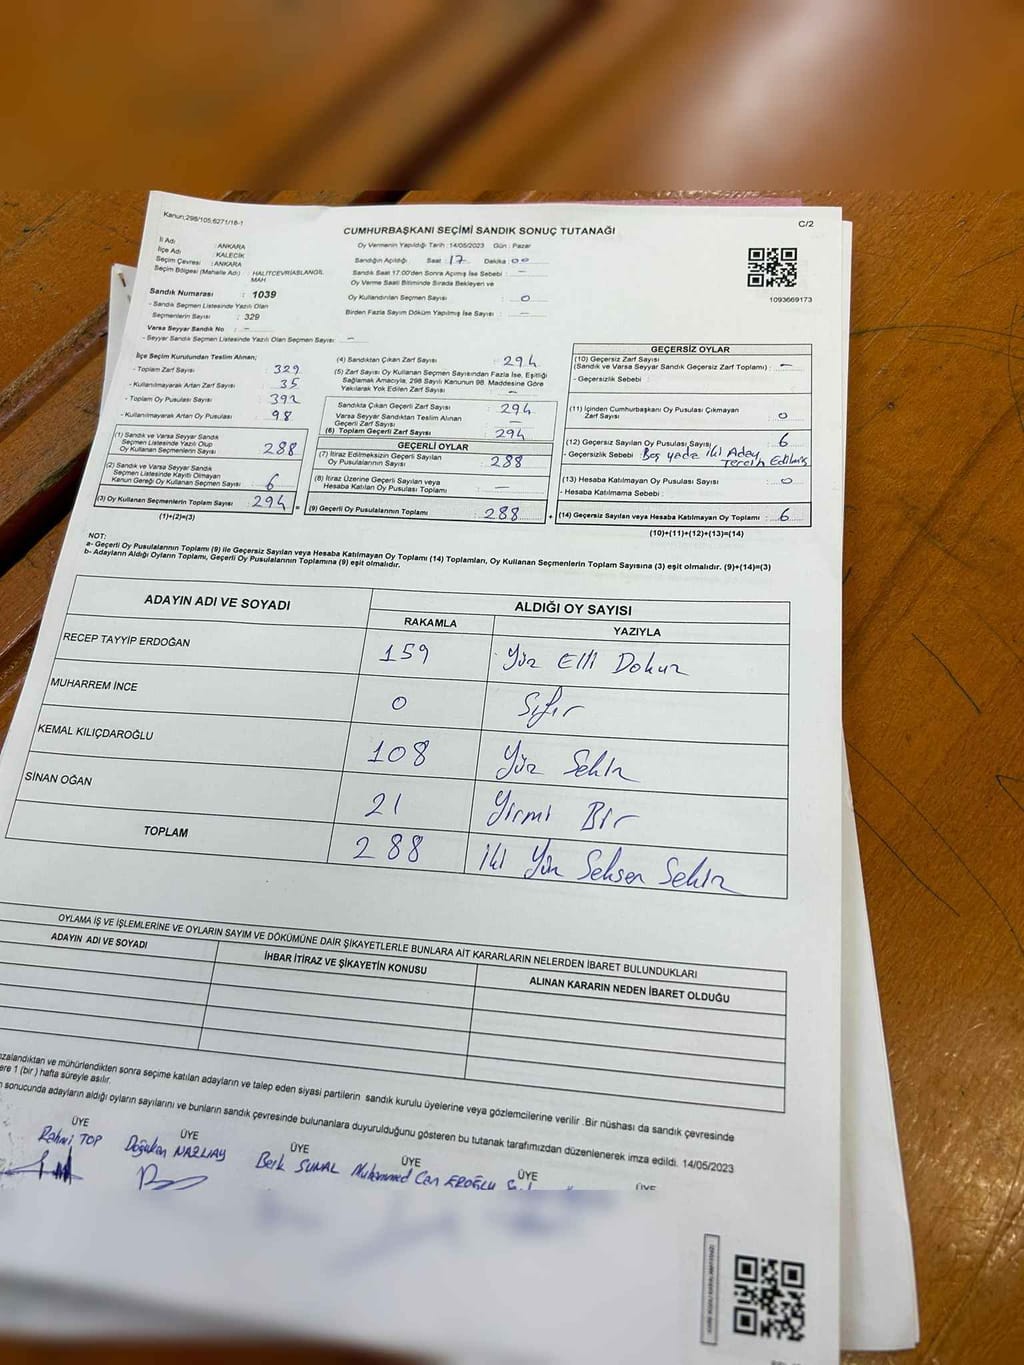 Kanun;298/105,6271/18-1
C/2
CUMHURBAŞKANI SEÇİMİ SANDIK SONUÇ TUTANAĞI
İl Adı : ANKARA
İlçe Adı : KALECİK
Seçim Çevresi : ANKARA
Seçim Bölgesi (Mahalle Adı) HALİTCEVRİASLANGİL MAH
Sandık Numarası : 1039
- Sandık Seçmen Listesinde Yazılı Olan
Seçmenlerin Sayısı : 329
Varsa Seyyar Sandık No : -
- Seyyar Sandık Seçmen Listesinde Yazılı Olan Seçmen Sayısı : -
Oy Vermenin Yapıldığı Tarih : 14/05/2023 Gün : Pazar
Sandığın Açıldığı Saat : 17 Dakika 00
Sandık Saat 17:00'den Sonra Açılmış İse Sebebi : -
Oy Verme Saati Bitiminde Sırada Bekleyen ve
Oy Kullandırılan Seçmen Sayısı : 0
Birden Fazla Sayım Döküm Yapılmış İse Sayısı : -
1093669173
İlçe Seçim Kurulundan Teslim Alınan;
- Toplam Zarf Sayısı : 329
- Kullanılmayarak Artan Zarf Sayısı : 35
- Toplam Oy Pusulası Sayısı : 392
- Kullanılmayarak Artan Oy Pusulası : 98
(1) Sandık ve Varsa Seyyar Sandık
Seçmen Listesinde Yazılı Olup
Oy Kullanan Seçmenlerin Sayısı : 288
(2) Sandık ve Varsa Seyyar Sandık
Seçmen Listesinde Kayıtlı Olmayan
Kanun Gereği Oy Kullanan Seçmen Sayısı : 6
(3) Oy Kullanan Seçmenlerin Toplam Sayısı : 294 =
(1)+(2)=(3)
(4) Sandıktan Çıkan Zarf Sayısı : 294
(5) Zarf Sayısı Oy Kullanan Seçmen Sayısından Fazla İse, Eşitliği
Sağlamak Amacıyla, 298 Sayılı Kanunun 98. Maddesine Göre
Yakılarak Yok Edilen Zarf Sayısı : -
Sandıkta Çıkan Geçerli Zarf Sayısı : 294
Varsa Seyyar Sandıktan Teslim Alınan
Geçerli Zarf Sayısı : -
(6) Toplam Geçerli Zarf Sayısı : 294
GEÇERLİ OYLAR
(7) İtiraz Edilmeksizin Geçerli Sayılan
Oy Pusulasının Sayısı : 288
(8) İtiraz Üzerine Geçerli Sayılan veya
Hesaba Katılan Oy Pusulası Toplamı : -
(9) Geçerli Oy Pusulalarının Toplamı : 288 +
GEÇERSİZ OYLAR
(10) Geçersiz Zarf Sayısı
(Sandık ve Varsa Seyyar Sandık Geçersiz Zarf Toplamı) : -
- Geçersizlik Sebebi :
(11) İçinden Cumhurbaşkanı Oy Pusulası Çıkmayan
Zarf Sayısı : 0
(12) Geçersiz Sayılan Oy Pusulası Sayısı : 6
- Geçersizlik Sebebi : Boş yada iki Aday
Tercih Edilmiş
(13) Hesaba Katılmayan Oy Pusulası Sayısı : 0
- Hesaba Katılmama Sebebi :
(14) Geçersiz Sayılan veya Hesaba Katılmayan Oy Toplamı : 6
(10)+(11)+(12)+(13)=(14)
NOT:
a- Geçerli Oy Pusulalarının Toplamı (9) ile Geçersiz Sayılan veya Hesaba Katılmayan Oy Toplamı (14) Toplamları, Oy Kullanan Seçmenlerin Toplam Sayısına (3) eşit olmalıdır. (9)+(14)=(3)
b- Adayların Aldığı Oyların Toplamı, Geçerli Oy Pusulalarının Toplamına (9) eşit olmalıdır.
ADAYIN ADI VE SOYADI
ALDIĞI OY SAYISI
RAKAMLA YAZIYLA
RECEP TAYYİP ERDOĞAN 159 Yüz Elli Dokuz
MUHARREM İNCE 0 Sıfır
KEMAL KILIÇDAROĞLU 108 Yüz Sekiz
SİNAN OĞAN 21 Yirmi Bir
TOPLAM 288 iki Yüz Seksen Sekiz
OYLAMA İŞ VE İŞLEMLERİNE VE OYLARIN SAYIM VE DÖKÜMÜNE DAİR ŞİKAYETLERLE BUNLARA AİT KARARLARIN NELERDEN İBARET BULUNDUKLARI
ADAYIN ADI VE SOYADI
İHBAR İTİRAZ VE ŞİKAYETİN KONUSU
ALINAN KARARIN NEDEN İBARET OLDUĞU
zalandıktan ve mühürlendikten sonra seçime katılan adayların ve talep eden siyasi partilerin sandık kurulu üyelerine veya gözlemcilerine verilir .Bir nüshası da sandık çevresinde
ere 1 (bir ) hafta süreyle asılır.
n sonucunda adayların aldığı oyların sayılarını ve bunların sandık çevresinde bulunanlara duyurulduğunu gösteren bu tutanak tarafımızdan düzenlenerek imza edildi. 14/05/2023
ÜYE ÜYE ÜYE ÜYE ÜYE ÜYE
Rahmi TOP Doğukan NAZLIAY Berk SUNAL Muhammed Can EROĞLU